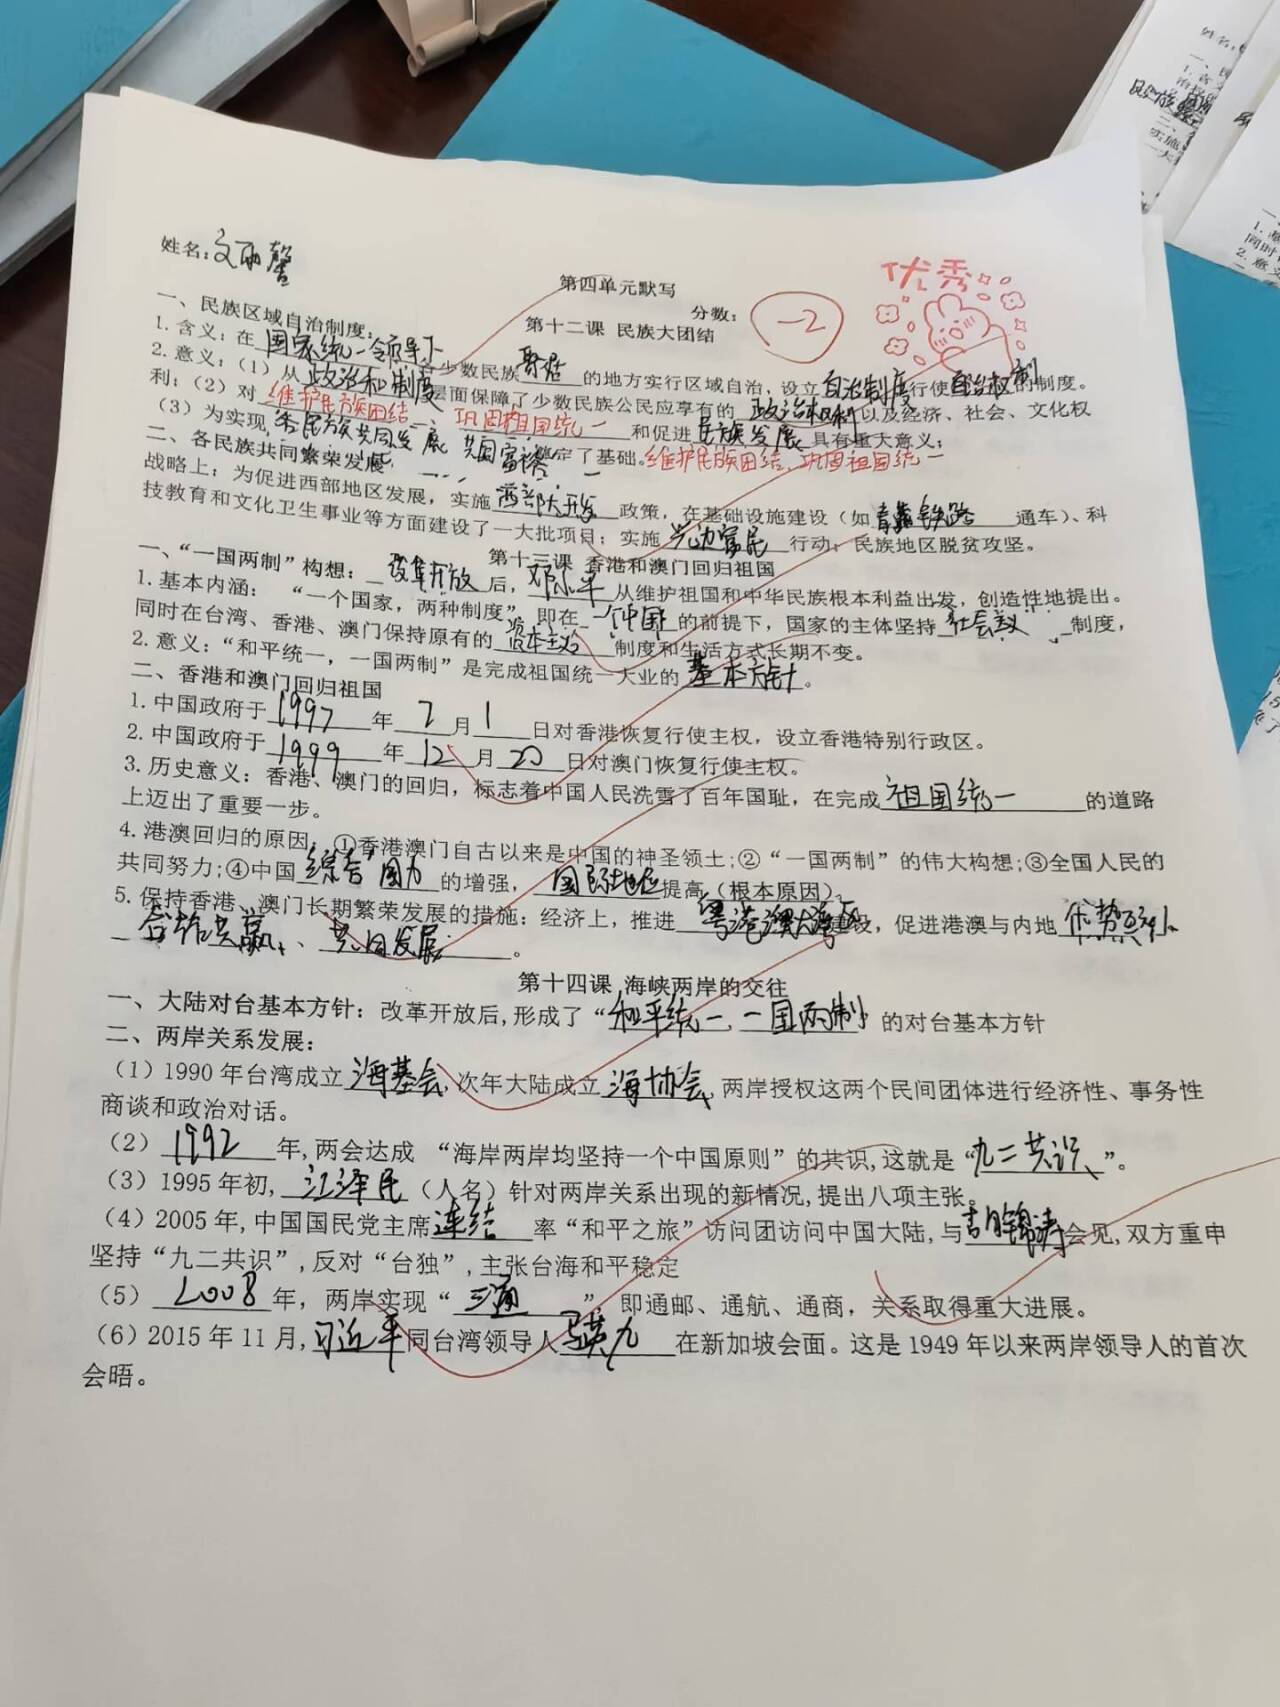 姓名:文雨馨
第四单元默写
优秀
分数: -2
第十二课 民族大团结
一、民族区域自治制度:
1.含义:在国家统一领导下,各少数民族聚居的地方实行区域自治,设立自治制度行使自治权制的制度。
2.意义:(1)从政治和制度层面保障了少数民族公民应享有的政治权利以及经济、社会、文化权
利;(2)对维护民族团结、巩固祖国统一和促进民族发展具有重大意义;
(3)为实现各民族共同发展 共同富裕奠定了基础。维护民族团结,巩固祖国统一
二、各民族共同繁荣发展
战略上:为促进西部地区发展,实施西部大开发政策,在基础设施建设(如青藏铁路通车)、科
技教育和文化卫生事业等方面建设了一大批项目;实施兴边富民行动;民族地区脱贫攻坚。
第十三课 香港和澳门回归祖国
一、“一国两制”构想:改革开放后,邓小平从维护祖国和中华民族根本利益出发,创造性地提出。
1.基本内涵: “一个国家,两种制度”,即在一个中国的前提下,国家的主体坚持社会主义制度,
同时在台湾、香港、澳门保持原有的资本主义制度和生活方式长期不变。
2.意义:“和平统一,一国两制”是完成祖国统一大业的基本方针。
二、香港和澳门回归祖国
1.中国政府于1997年7月1日对香港恢复行使主权,设立香港特别行政区。
2.中国政府于1999年12月20日对澳门恢复行使主权。
3.历史意义:香港、澳门的回归,标志着中国人民洗雪了百年国耻,在完成祖国统一的道路
上迈出了重要一步。
4.港澳回归的原因:①香港澳门自古以来是中国的神圣领土;②“一国两制”的伟大构想;③全国人民的
共同努力;④中国综合国力的增强,国际地位提高(根本原因)。
5.保持香港、澳门长期繁荣发展的措施:经济上,推进粤港澳大湾区建设,促进港澳与内地优势互补、
合作共赢、共同发展。
第十四课 海峡两岸的交往
一、大陆对台基本方针:改革开放后,形成了“和平统一,一国两制”的对台基本方针
二、两岸关系发展:
(1)1990年台湾成立海基会,次年大陆成立海协会,两岸授权这两个民间团体进行经济性、事务性
商谈和政治对话。
(2)1992年,两会达成 “海岸两岸均坚持一个中国原则”的共识,这就是“九二共识”。
(3)1995年初,江泽民(人名)针对两岸关系出现的新情况,提出八项主张。
(4)2005年,中国国民党主席连结率“和平之旅”访问团访问中国大陆,与胡锦涛会见,双方重申
坚持“九二共识”,反对“台独”,主张台海和平稳定
(5)2008年,两岸实现“三通”,即通邮、通航、通商,关系取得重大进展。
(6)2015年11月,习近平同台湾领导人马英九在新加坡会面。这是1949年以来两岸领导人的首次
会晤。